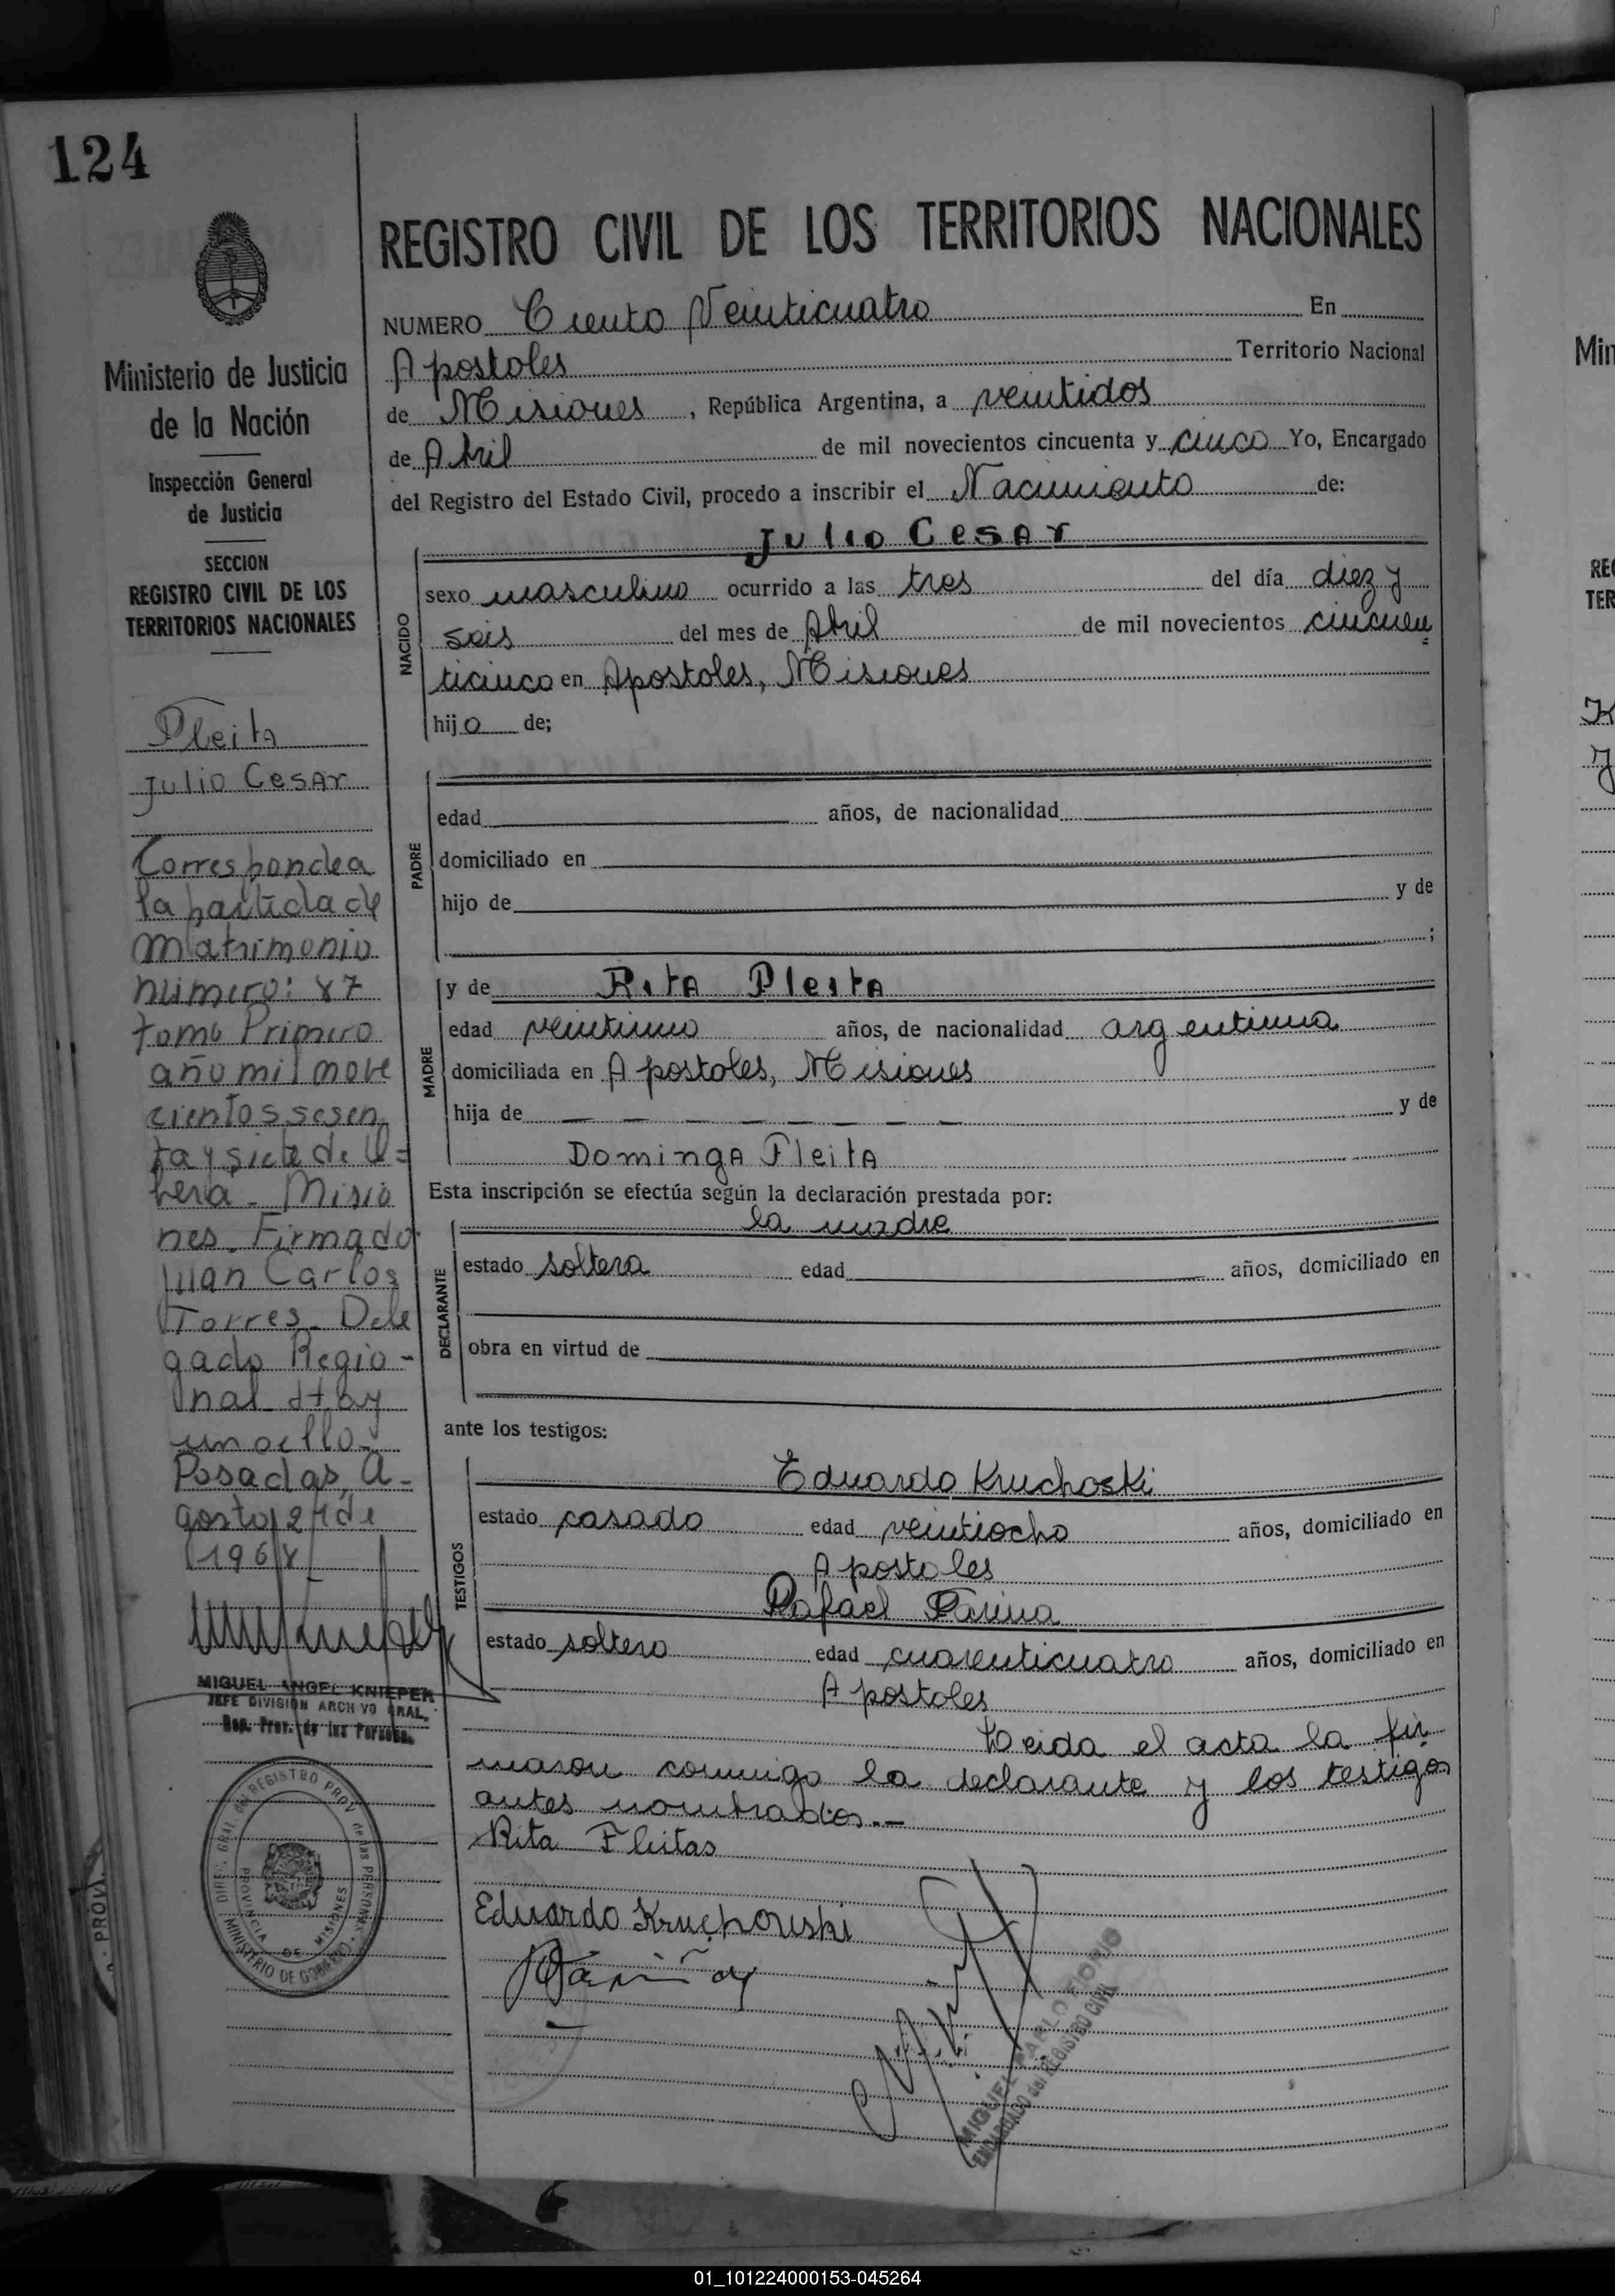 124
Ministerio de Justicia
de la Nación
Inspección General
de Justicia
SECCION
REGISTRO CIVIL DE LOS
TERRITORIOS NACIONALES
Fleita
Julio Cesar
Corresponde a
la partida de
Matrimonio
número: 87
tomo Primero
año mil nove
cientos sesen
ta y siete de
Misio
nes. Firmado
Juan Carlos
Torres. Dele
gado Regio-
nal. Hay
un sello.
Posadas, A-
gosto 27 de
1968
MIGUEL ANGEL KNIEPER
JEFE DIVISION ARCHIVO GRAL.
Reg. Prov. de las Personas.
DIREC. GRAL. del REGISTRO PROV. de las PERSONAS
MINISTERIO DE GOBIERNO
PROVINCIA DE MISIONES
REGISTRO CIVIL DE LOS TERRITORIOS NACIONALES
NUMERO Ciento Veinticuatro En
Apostoles Territorio Nacional
de Misiones, República Argentina, a veintidos
de Abril de mil novecientos cincuenta y cinco Yo, Encargado
del Registro del Estado Civil, procedo a inscribir el Nacimiento de:
NACIDO
Julio Cesar
sexo masculino ocurrido a las tres del día diez y
seis del mes de Abril de mil novecientos cincuen
ticinco en Apostoles, Misiones
hijo de;
PADRE
edad años, de nacionalidad
domiciliado en
hijo de y de
;
MADRE
y de Rita Fleita
edad veintiuno años, de nacionalidad argentina
domiciliada en Apostoles, Misiones
hija de — — — — — — — y de
Dominga Fleita
Esta inscripción se efectúa según la declaración prestada por:
DECLARANTE
la madre
estado soltera edad años, domiciliado en
obra en virtud de
ante los testigos:
TESTIGOS
Eduardo Kruchoski
estado casado edad veintiocho años, domiciliado en
Apostoles
Rafael Farina
estado soltero edad cuarenticuatro años, domiciliado en
Apostoles
Leida el acta la fir
maron conmigo la declarante y los testigos
antes nombrados.-
Rita Fleitas
Eduardo Kruchowski
MIGUEL CARLO FIORIO
ENCARGADO del REGISTRO CIVIL
PROV.
Min
REG
TER
01_101224000153-045264